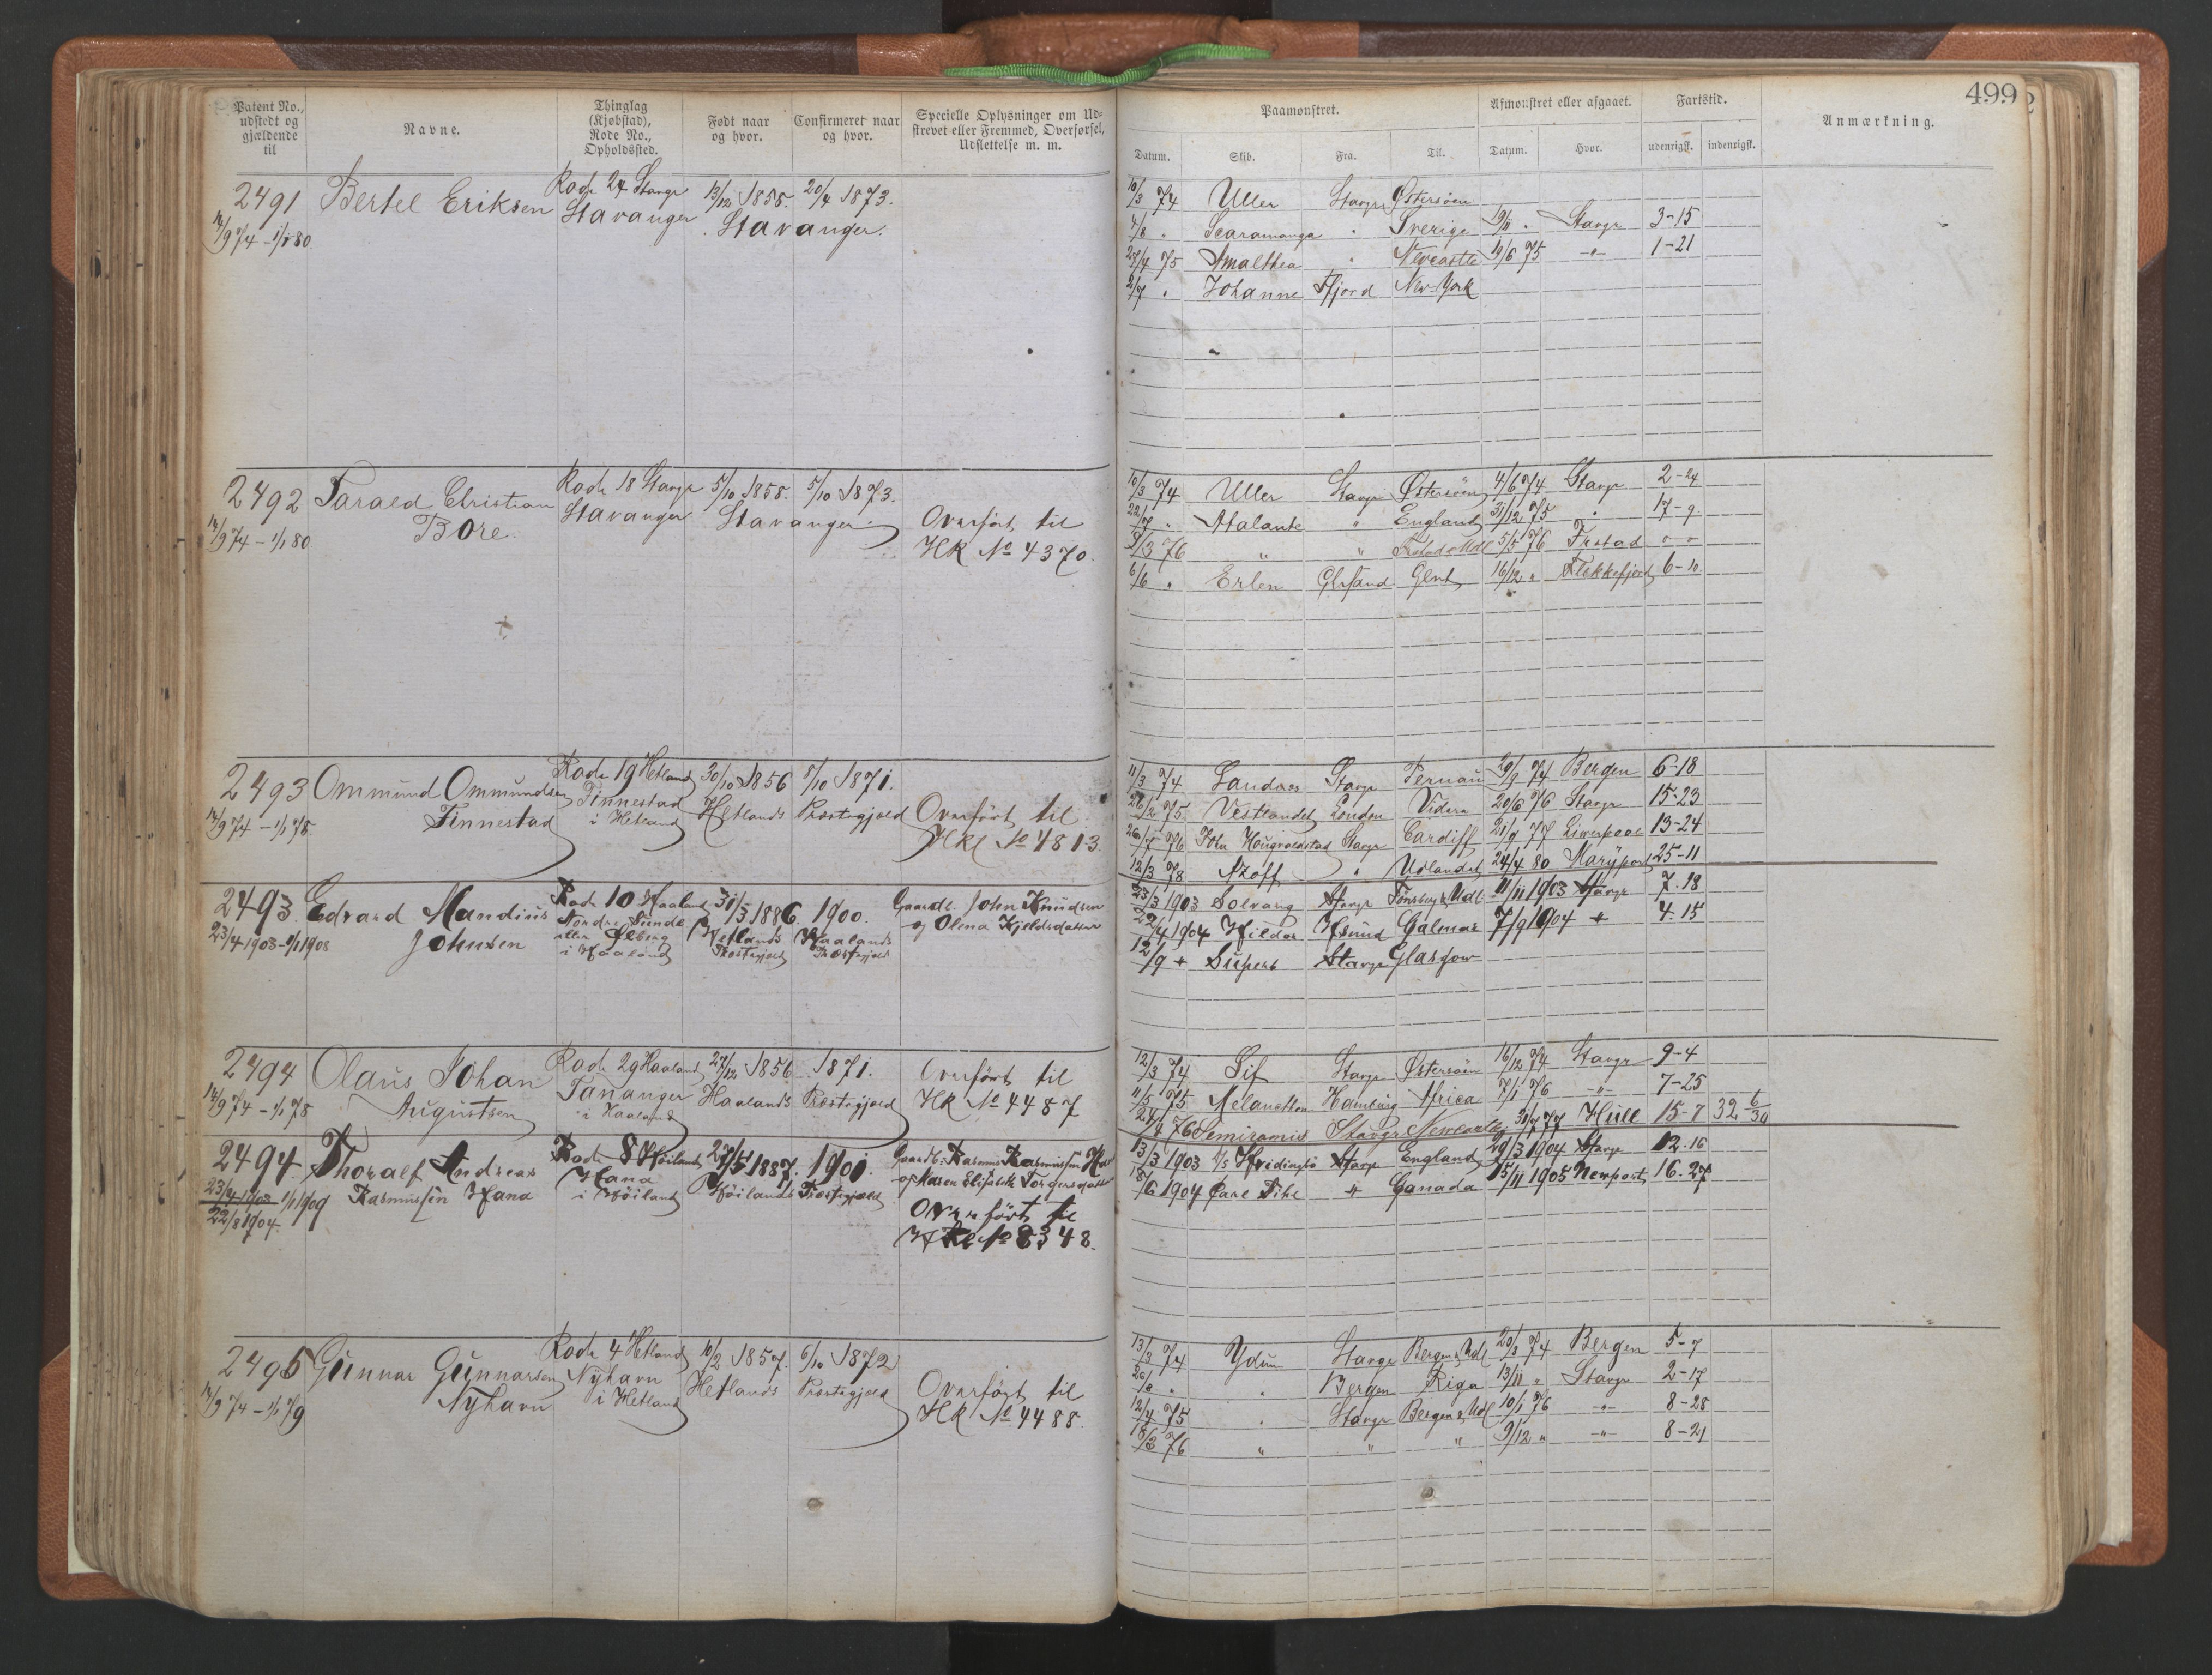 Patent No.,
udstedt og
gjældende
til
Navne.
Thinglag
(Kjøbstad),
Rode No.,
Opholdssted.
Født naar
og hvor.
Confirmeret naar
og hvor.
Specielle Oplysninger om Ud-
skrevet eller Fremmed, Overførsel,
Udslettelse m. m.
2491 Bertel Eriksen Rode 24 Stavgr 13/12 1858. 20/4 1873.
14/9 74 - 1/1 80 Stavanger Stavanger.
2492 Tarald Christian Rode 18 Stavgr 5/10 1858. 5/10 1873.
14/9 74 - 1/1 80 Bore. Stavanger Stavanger. Overført til
HK No 4370.
2493 Ommund Ommundsen Rode 19 Hetland 30/10 1856 8/10 1871.
14/9 74 - 1/1 78. Finnestad Finnestad i Hetland Hetlands Præstegjæld Overført til
HKl No 4813.
2493. Edvard Mandius Rode 10 Haaland 31/5 1886. 1900. Gaardb. John Knudsen
23/4 1903-1/1 1908 Johnsen Nordre Sunde Hetlands Haalands og Olena Kjeldsdatter
eller
i Haaland Præstegjæld Præstegjæld
2494 Olaus Johan Rode 29 Haaland 27/12 1856 1871. Overført til
14/9 74 - 1/1 78 Augustsen Tananger i Haaland Haalands Præstegjæld HK No 4487
2494. Thoralf Andreas Rode 8 Høiland 27/5 1887. 1901. Gaardb. Rasmus Rasmussen
23/4 1903 1/1 1909 Rasmussen Hana Hana i Høiland Høilands Præstegjæld og Maren Elisabeth Torgersdatter
22/8 1904. Overført til
HKl No 8348.
2495 Gunnar Gunnarsen Rode 4 Hetland 10/2 1857. 6/10 1872
14/9 74 - 1/1 79 Nyhavn Nyhavn i Hetland Hetlands Præstegjæld Overført til
HK No 4488.
499
Paamønstret.
Afmønstret eller afgaaet.
Fartstid.
Anmærkning.
Datum. Skib. Fra. Til. Datum. Hvor. udenrigsk. indenrigsk.
10/3 74 Uller Stavgr Østersøen
4/8 " Scaramanga " Sverige 19/11 " Stavgr 3-15
23/4 75 Amalthea " Newcastle 10/6 75 -"- 1-21
2/7 " Johanne Ffjord New-York
10/3 74 Uller Stavgr Østersøen 4/6 74 Stavgr 2-24
22/7 " Atalante " England 31/12 75 " 17-9
8/3 76 " " Frstad & Udl 5/5 76 Frstad " "
6/6 " Erlen Chrsand Gent 16/12 " Flekkefjord 6-10
11/3 74 Sandnes Stavgr Pernau 29/9 74 Bergen 6-18
26/2 75. Vestlandet London 20/6 76 Stavgr 15-23
26/7 76 John Stavgr Cardiff 21/9 77 Liverpool 13-24
12/3 78 Azoff " Udlandet 24/4 80 Maryport 25-11
23/3 1903 Solvang Stavgr Tønsberg & Udl 11/11 1903 Stavgr 7.18
22/4 1904 Hildor Hsund Galmar 7/9 1904 + 4.15
12/9 + Superb Stavgr Glasgow
12/3 74 Sif Stavgr Østersøen 16/12 74 Stavgr 9-4
11/5 75 Melancthon Hamburg Africa 7/1 76 -"- 7-25
24/4 76 Semiramis Stavgr Newcastle 31/7 77 Hull 15-7 32 6/30
13/3 1903 S/S Hvidingsö Stavgr England 29/3 1904 Stavgr 12.16
18/6 1904 Carl Pihl " Canada 15/11 1905 Newport 16.27
13/3 74 Ydun Stavgr Bergen & Udl 20/8 74 Bergen 5-7
" " Bergen Riga 13/11 " Stavgr 2-17
12/4 75 " Stavgr Bergen & Udl 10/1 76 -"- 8-28
18/3 76 " " " 9/12 " -"- 8-21